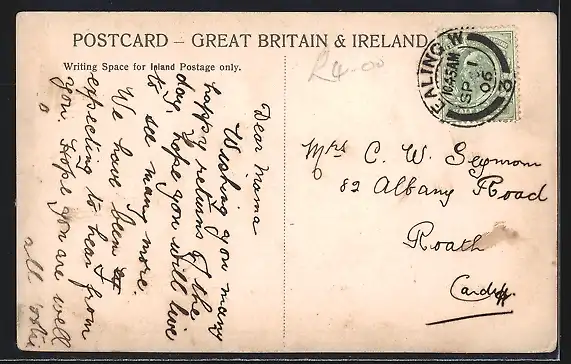 POSTCARD – GREAT BRITAIN & IRELAND
Writing Space for Inland Postage only.
£4-00
EALING W
10.45AM
SP
06
Dear Mama
Wishing you many
happy returns of the
day, hope you will live
to see many more.
We have been
expecting to hear from
you. Hope you are well
all
Mrs C. W. Seymour
82 Albany Road
Roath
Cardiff.